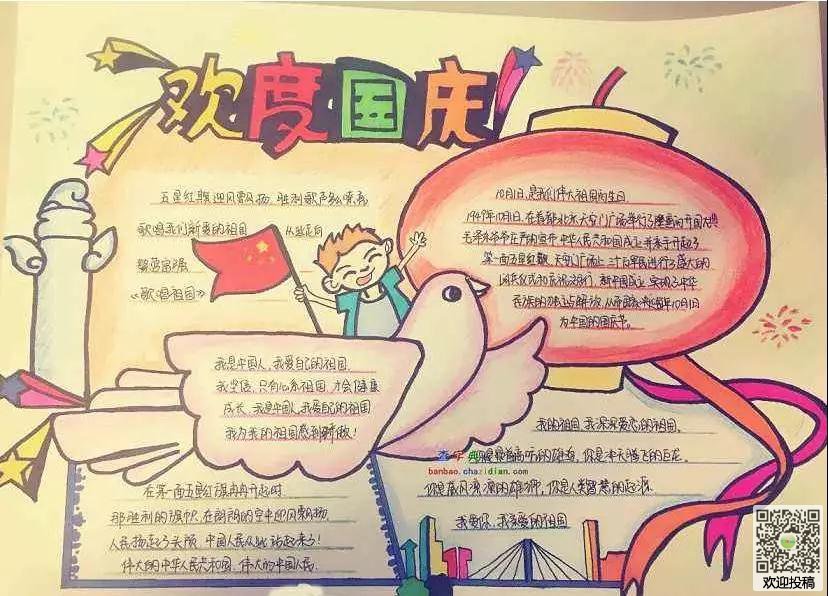 欢度国庆
五星红旗迎风飘扬,胜利歌声多么嘹亮
歌唱我们亲爱的祖国 从此走向
繁荣富强
《歌唱祖国》
10月1日,是我们伟大祖国的生日
1949年10月1日,在首都北京天安门广场举行了隆重的开国大典
毛泽东爷爷庄严的宣布 中华人民共和国成立并亲手升起了
第一面五星红旗 天安门广场上三十万军民进行了盛大的
阅兵仪式和庆祝游行 新中国成立,实现了中华
民族的独立与解放,每年10月1日
为中国的国庆节。
我是中国人,我爱自己的祖国
我坚信,只有心系祖国,才会健康
成长,我是中国人,我爱自己的祖国
我为我的祖国感到骄傲!
在第一面五星红旗冉冉升起时
那胜利的旗帜,在朗朗的空中迎风飘扬
人民扬起了头颅 中国人民从此站起来了!
伟大的中华人民共和国,伟大的中国人民.
我的祖国,我深深爱恋的祖国,
你是 的雄鸡,你是冲天腾飞的巨龙
你是威风凛凛的雄狮,你是人类智慧的起源
我爱你,我亲爱的祖国
查字典
banbao.chazidian.com
欢迎投稿